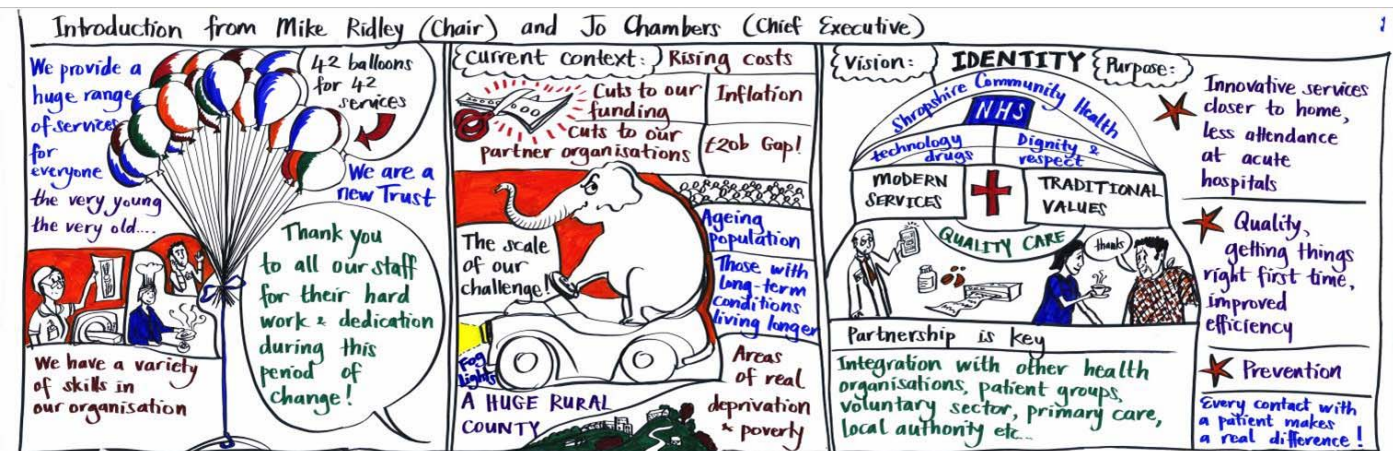 Introduction from Mike Ridley (Chair) and Jo Chambers (Chief Executive)
1
We provide a
huge range
of services
for
everyone
the very young
the very old....
42 balloons
for 42
services
We are a
new Trust
Thank you
to all our staff
for their hard
work & dedication
during this
period of
change!
We have a variety
of skills in
our organisation
Current context:
Rising costs
Cuts to our
funding
Inflation
Cuts to our
partner organisations
£20b Gap!
The scale
of our
challenge!
Ageing
population
Those with
long-term
conditions
living longer
Fog
lights
A HUGE RURAL
COUNTY
Areas
of real
deprivation
& poverty
Vision:
IDENTITY
Purpose:
Shropshire Community Health
NHS
technology
drugs
Dignity &
respect
MODERN
SERVICES
TRADITIONAL
VALUES
QUALITY CARE
thanks
Partnership is key
Integration with other health
organisations, patient groups,
voluntary sector, primary care,
local authority etc...
Innovative services
closer to home,
less attendance
at acute
hospitals
Quality,
getting things
right first time,
improved
efficiency
Prevention
Every contact with
a patient makes
a real difference!